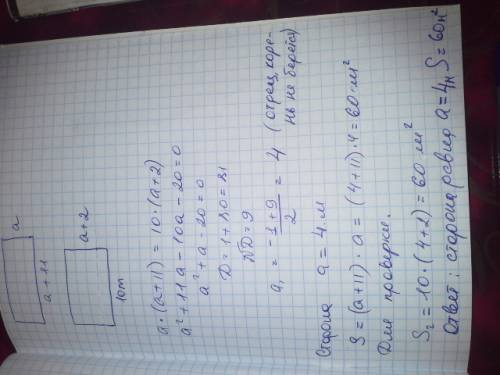 a
a+11
a+2
10m
a·(a+11)=10·(a+2)
a²+11a-10a-20=0
a²+a-20=0
D=1+80=81
√D=9
a₁ = (-1+9)/2 = 4 (отриц. коре-
нь не берется)
Сторона a=4 м
S=(a+11)·a=(4+11)·4=60 м²
Для проверки.
S₂=10·(4+2)=60 м²
Ответ: сторона равна a=4м S=60м²